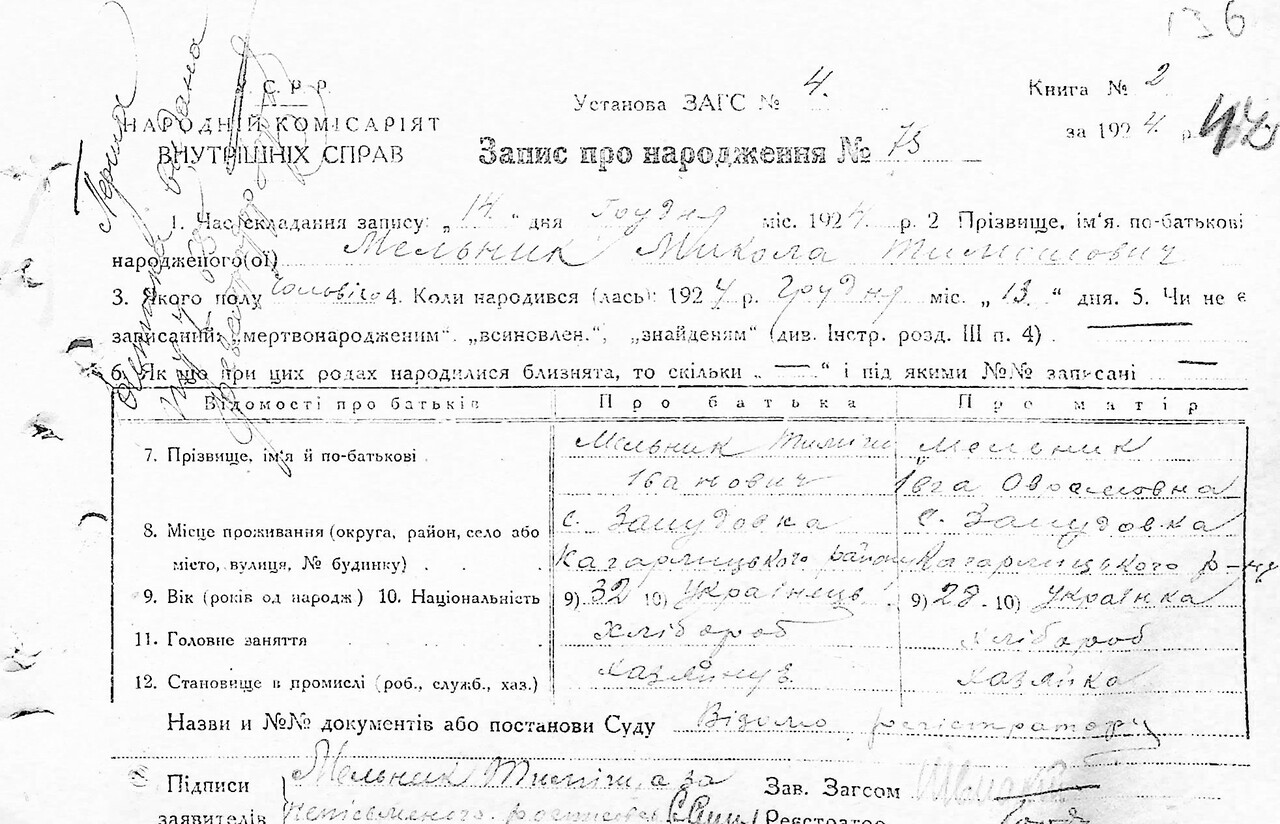 136
С. Р. Р.
НАРОДНІЙ КОМІСАРІЯТ
ВНУТРІШНІХ СПРАВ
Установа ЗАГС № 4.
Книга № 2
за 1924 р.
Запис про народження № 75
1. Час складання запису: „14“ дня Грудня міс. 1924 р. 2 Прізвище, ім'я. по-батькові
народженого(ої) Мельник Микола Тимошович
3. Якого полу 4. Коли народився (лась): 1924 р. Грудня міс. „13.“ дня. 5. Чи не є
записаний: „мертвонародженим“. „всиновлен.“, „знайденям“ (див. Інстр. розд. III п. 4) .
6. Як що при цих родах народилися близнята, то скільки „ — “ і під якими №№ записані —
Відомості про батьків Про батька Про матір
7. Прізвище, ім'я й по-батькові Мельник Тиміш Мельник
Іванович Оврамовна
8. Місце проживання (округа, район, село або с. Зашудовка с. Зашудовка
місто, вулиця, № будинку) . . . Кагарлицького району Кагарлицького р-ну
9. Вік (років од народж) 10. Національність 9) 32 10) Українець 9) 28 - 10) Українка
11. Головне заняття хлібороб хлібороб
12. Становище в промислі (роб., служб., хаз.) хазяйнує хазяйка
Назви и №№ документів або постанови Суду Відомо регістратору
Підписи Мельник Тиміш, а за Зав. Загсом
заявителів неписьменного росписався Реєстратор
Перша
видана